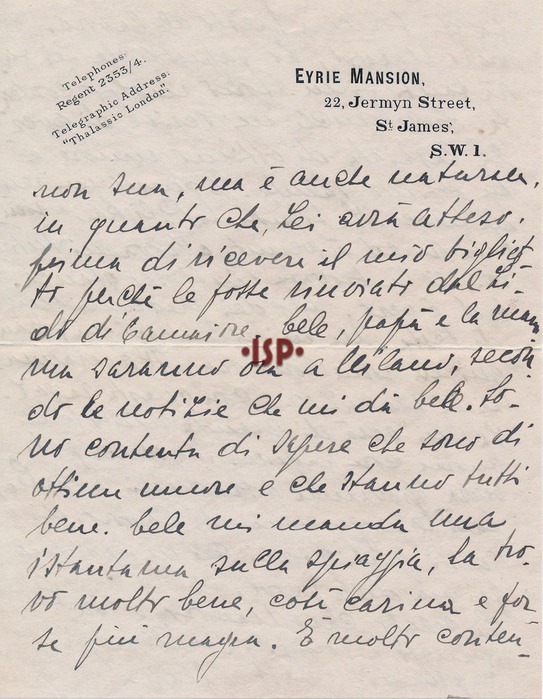 Telephones:
Regent 2353/4.
Telegraphic Address.
"Thalassic London".
EYRIE MANSION,
22, Jermyn Street,
St James',
S.W.1.
non sua, ma è anche naturale,
in quanto che, Lei avrà atteso.
prima di ricevere il mio bigliet
to perché le fosse rinviato dal Li-
do di Camaiore. bele, papà e la mam
ma saranno ora a Milano, secon
do le notizie che mi dà bele. So-
no contenta di sapere che sono di
ottimo umore e che stanno tutti
bene. bele mi manda una
istantanea sulla spiaggia, la tro-
vo molto bene, così carina e for
se più magra. È molto conten-
·ISP·